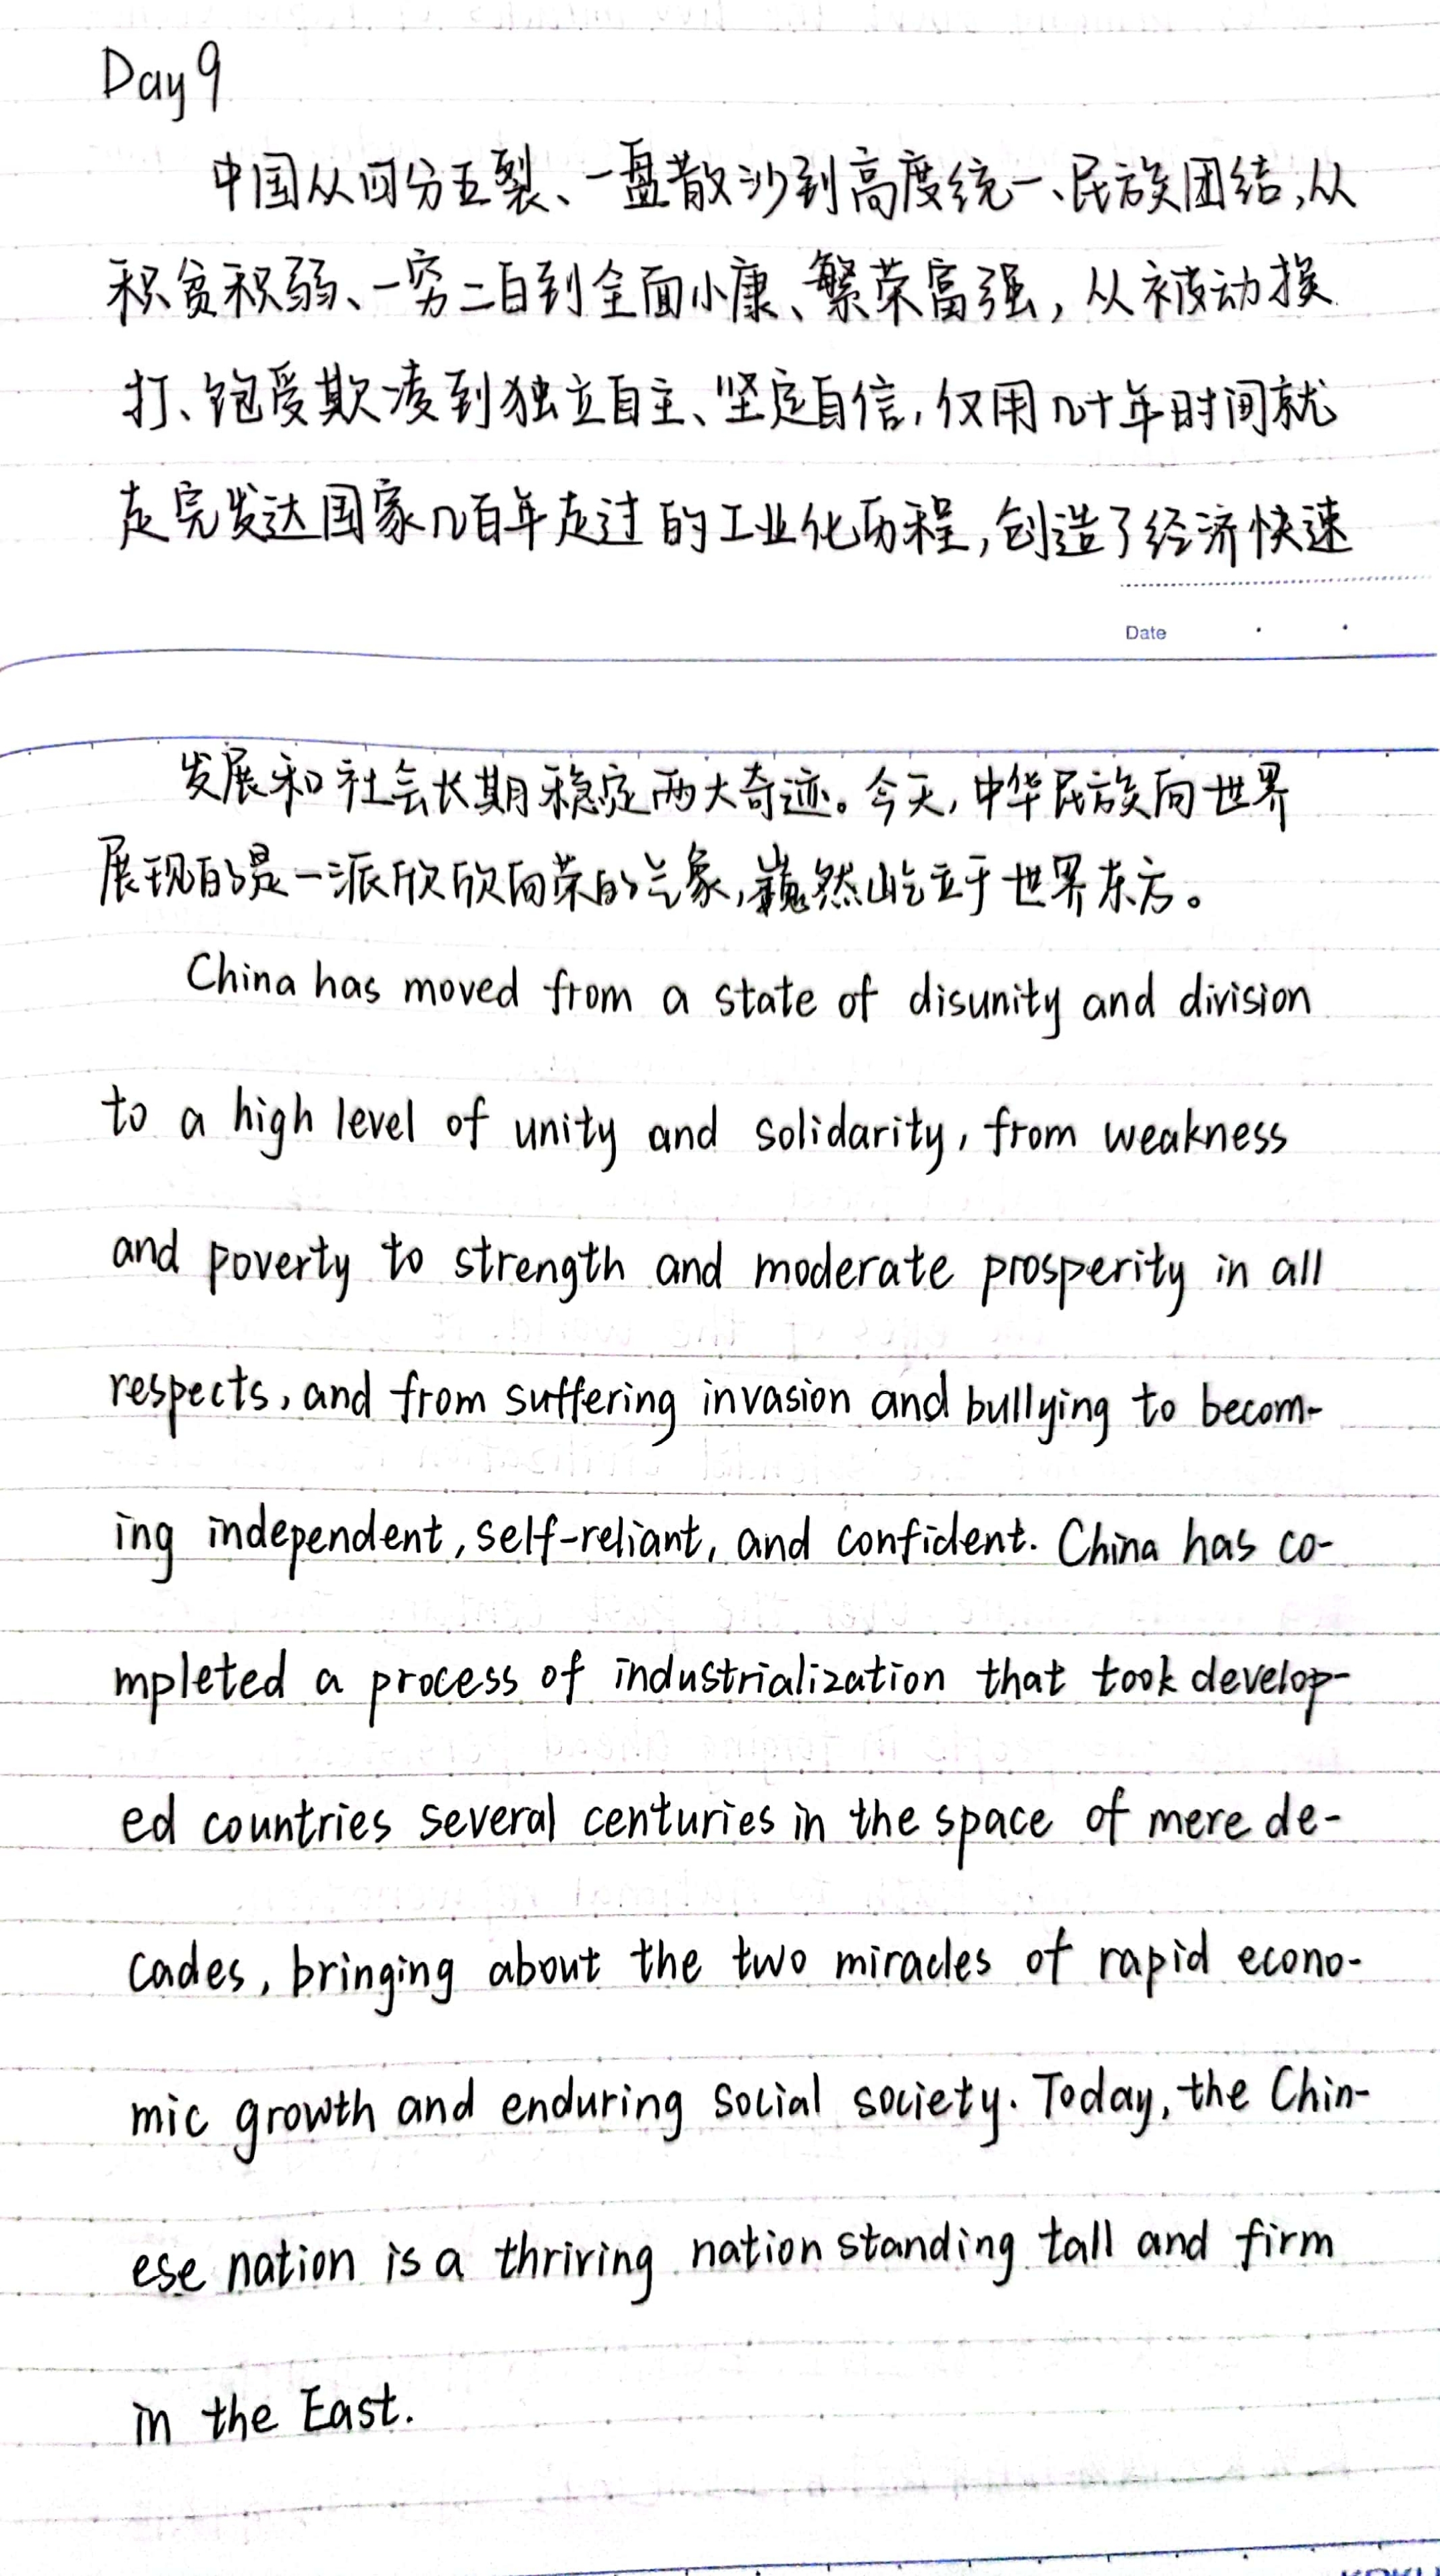 Day 9
中国从四分五裂、一盘散沙到高度统一、民族团结,从
积贫积弱、一穷二白到全面小康、繁荣富强,从被动挨
打、饱受欺凌到独立自主、坚定自信,仅用几十年时间就
走完发达国家几百年走过的工业化历程,创造了经济快速
Date
发展和社会长期稳定两大奇迹。今天,中华民族向世界
展现的是一派欣欣向荣的气象,巍然屹立于世界东方。
China has moved from a state of disunity and division
to a high level of unity and solidarity, from weakness
and poverty to strength and moderate prosperity in all
respects, and from suffering invasion and bullying to becom-
ing independent, self-reliant, and confident. China has co-
mpleted a process of industrialization that took develop-
ed countries several centuries in the space of mere de-
cades, bringing about the two miracles of rapid econo-
mic growth and enduring social society. Today, the Chin-
ese nation is a thriving nation standing tall and firm
in the East.